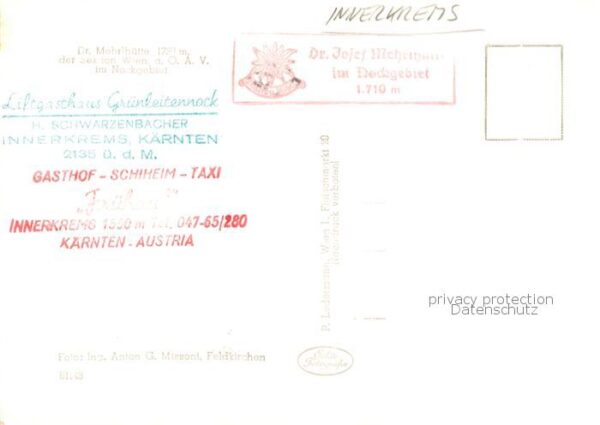 INNERKREMS
Dr. Mehrlhütte 1731 m,
der Sektion Wien, d. Ö. A. V.
im Nockgebiet
Dr. Josef Mehrlhütte
im Nockgebiet
1.710 m
Liftgasthaus Grünleitennock
H. SCHWARZENBACHER
INNERKREMS, KÄRNTEN
2135 Ü. d. M.
GASTHOF - SCHIHEIM - TAXI
INNERKREMS 1550 m Tel. 047-65/280
KÄRNTEN - AUSTRIA
P. Ledermann, Wien I., Fleischmarkt 20
Nachdruck verboten!
privacy protection
Datenschutz
Foto: Ing. Anton G. Feldkirchen
Echte
Fotografie